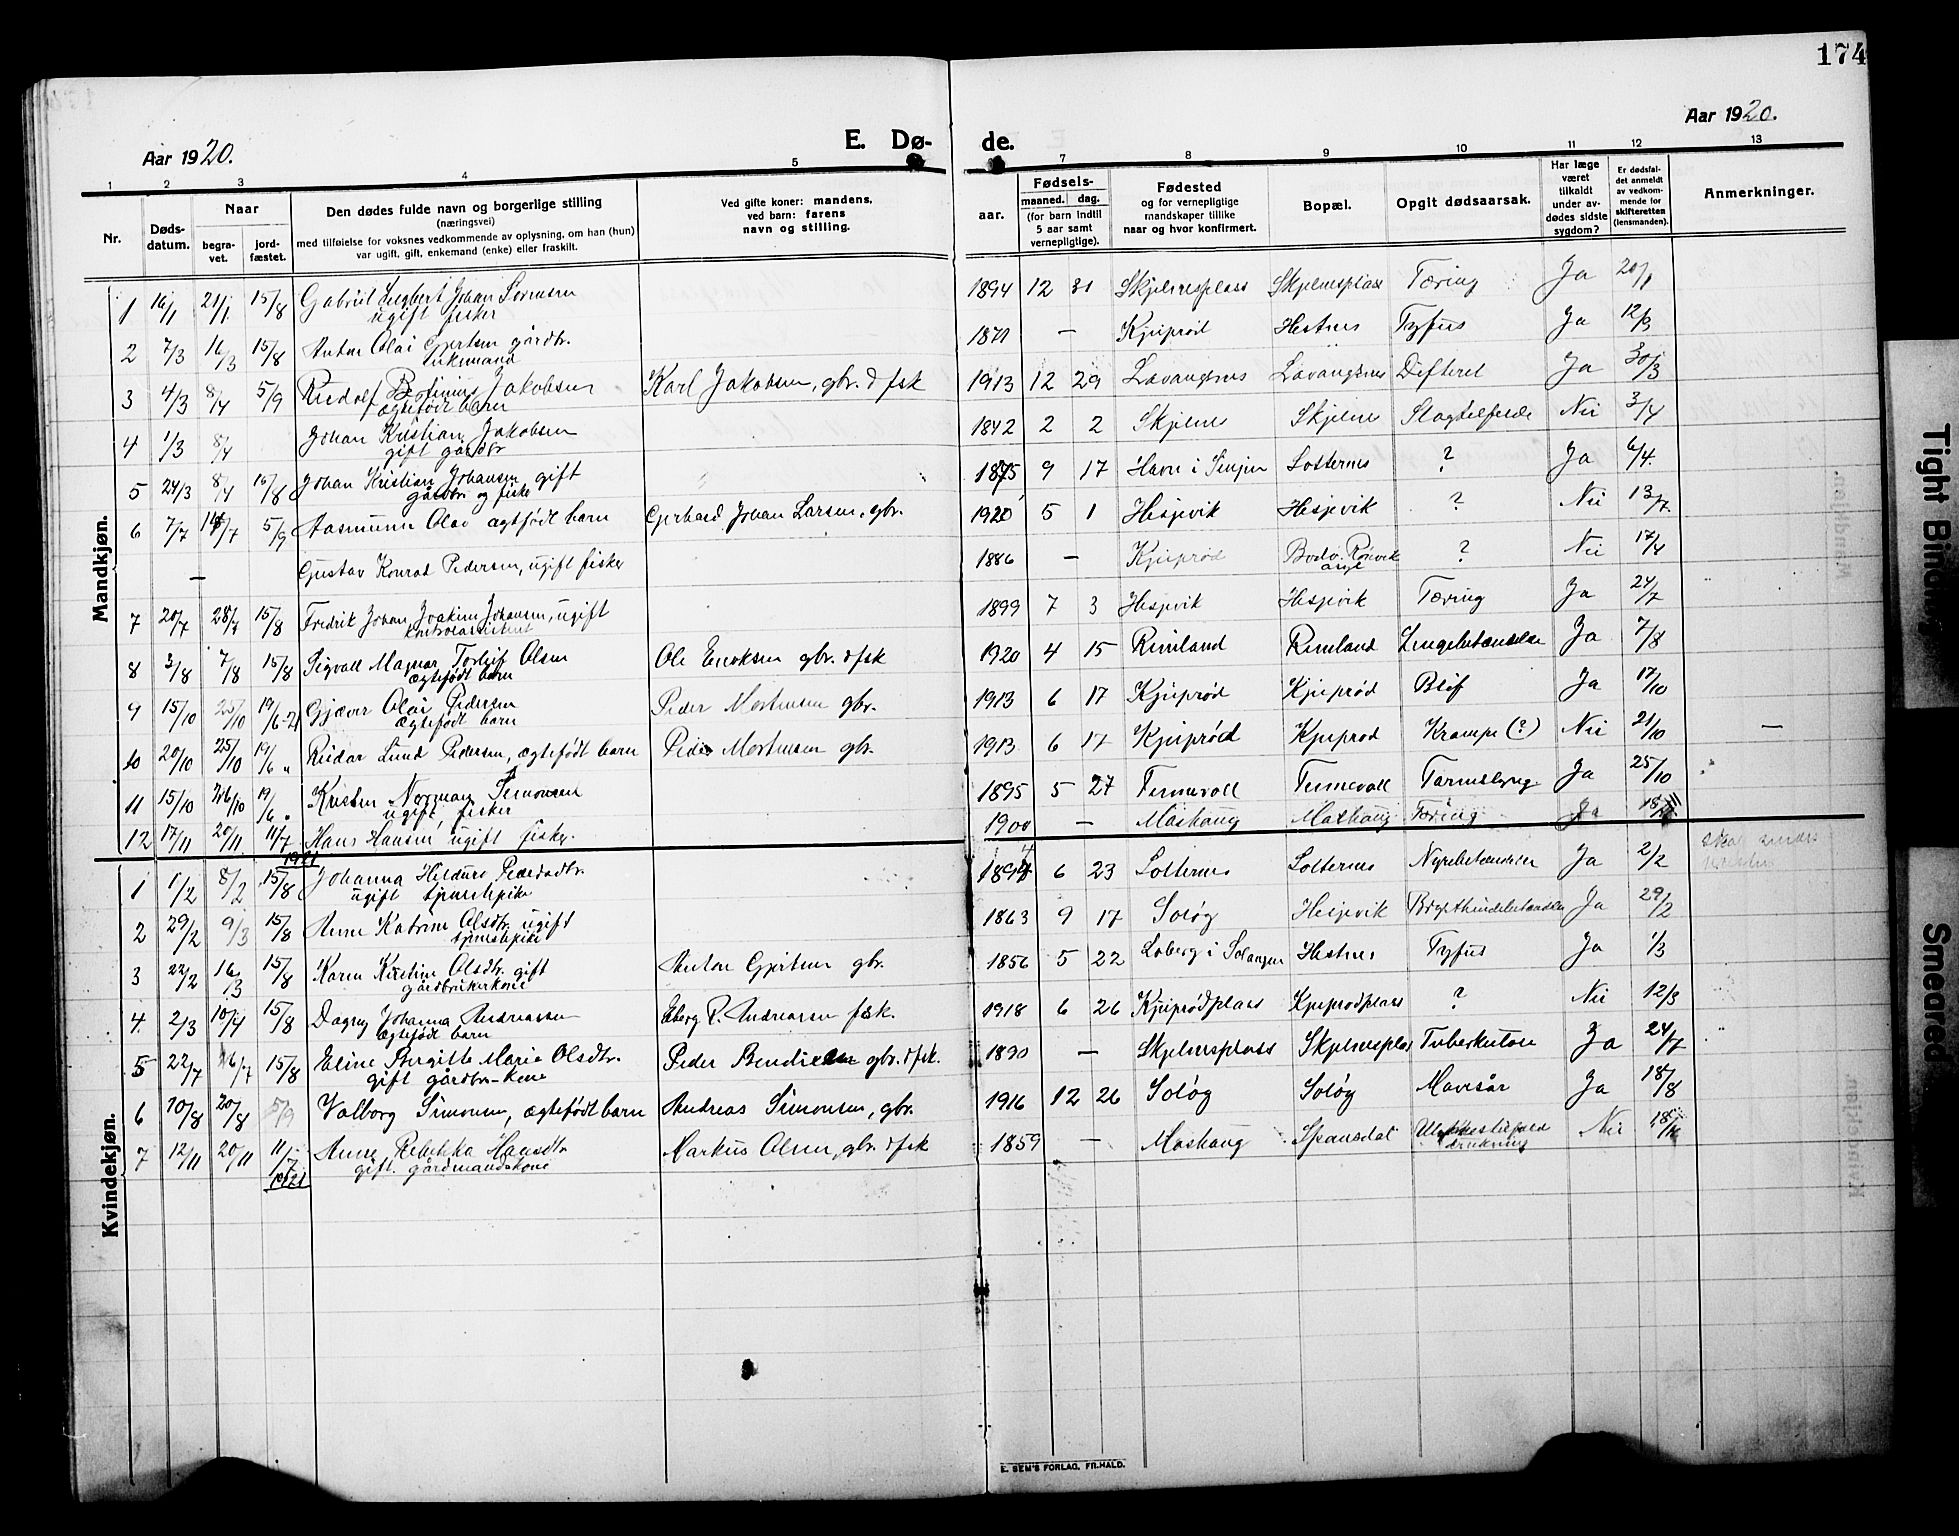 174
Aar 1920.
E. Dø-
de.
Aar 1920.
1 2 3 4 5 7 8 9 10 11 12 13
Nr.
Døds-
datum.
Naar
begra-
vet.
jord-
fæstet.
Den dødes fulde navn og borgerlige stilling
(næringsvei)
med tilføielse for voksnes vedkommende av oplysning, om han (hun)
var ugift, gift, enkemand (enke) eller fraskilt.
Ved gifte koner: mandens,
ved barn: farens
navn og stilling.
aar.
Fødsels-
maaned. dag.
(for barn indtil
5 aar samt
vernepligtige).
Fødested
og for vernepligtige
mandskaper tillike
naar og hvor konfirmert.
Bopæl.
Opgit dødsaarsak.
Har læge
været
tilkaldt
under av-
dødes sidste
sygdom?
Er dødsfal-
det anmeldt
av vedkom-
mende for
skifteretten
(lensmanden).
Anmerkninger.
Mandkjøn.
1 16/1 21/1 15/8 Gabriel Johan Sørensen 1894 12 31 Skjelnesplass Skjelnesplass Tæring Ja 20/1
ugift fisker
2 7/3 16/3 15/8 Anton Olai Gjertsen gårdbr. — Kjeiprød Hestnes Tyfus Ja 12/3
enkemand
3 4/3 8/4 5/9 Rudolf Jakobsen Karl Jakobsen, gbr. & fsk 1913 12 29 Lavangsnes Lavangsnes Difterit Ja 30/3
ægtefødt barn
4 1/3 8/4 Johan Kristian Jakobsen 1842 2 2 Skjelnes Skjelnes Slagtilfælde Nei 3/4
gift gårdbr
5 24/3 8/4 15/8 Johan Kristian Johansen gift 1875 9 17 Havn i Senjen Sotternes ? Ja 6/4.
gårdbr og fisker
6 7/7 14/7 5/9 Aasmunn Olav ægtefødt barn Gerhard Johan Larsen, gbr. 1920 5 1 Hesjevik Hesjevik ? Nei 13/7.
— Gustav Konrad Pedersen, ugift fisker 1886 — Kjeiprød Bodø. Rønvik ? Nei 17/4
asyl
7 20/7 28/7 15/8 Fredrik Johan Joakim Johansen, ugift 1899 7 3 Hesjevik Hesjevik Tæring Ja 24/7
kontorassistent
8 3/8 7/8 15/8 Sigvall Magnar Torleif Olsen Ole Eriksen gbr. & fsk 1920 4 15 Renland Renland Lungebetændelse Ja 7/8
ægtefødt barn
9 15/10 25/10 19/6-21 Gjæver Olai Pedersen Peder Mortensen gbr. 1913 6 17 Kjeiprød Kjeiprød Ja 17/10
ægtefødt barn
10 20/10 25/10 19/6 „ Reidar Lund Pedersen, ægtefødt barn Peder Mortensen gbr. 1913 6 17 Kjeiprød Kjeiprød Krampe (?) Nei 21/10 —
11 15/10 26/10 19/6 „ Kristen Norman Simonsen 1895 5 27 Tennevoll Tennevoll Tarmslyng Ja 25/10
ugift, fisker
12 17/11 20/11 11/7 Hans Hansen ugift fisker. 1900 — Mashaug Mashaug Tæring Ja 18/11
1921
Kvindekjøn.
1 1/2 8/2 15/8 Johanna Pedersdtr. 1894 6 23 Sotternes Sotternes Nyrebetændelse Ja 2/2
ugift tjenestepike
2 29/2 9/3 15/8 Anne Katrine Olsdtr. ugift 1863 9 17 Soløg Hesjevik Brysthindebetændelse Ja 29/2
tjenestepike
3 22/2 16/3 15/8 Karen Kirstine Olsdtr. gift Anton Gjertsen gbr. 1856 5 22 Loberg i Salangen Hestnes Tyfus Ja 1/3
gårdbrukerkone
4 2/3 10/4 15/8 Dagny Johanna Andreassen Eberg R. Andreassen fisk. 1918 6 26 Kjeiprødplass Kjeiprødplass ? Nei 12/3
ægtefødt barn
5 22/7 26/7 15/8 Eline Birgitte Marie Olsdtr. Peder Bendiksen gbr. & fsk. 1890 — Skjelnesplass Skjelnesplass Tuberkulose Ja 24/7
gift gårdbr-kone
6 10/8 20/8 5/9 Valborg Simonsen, ægtefødt barn Andreas Simonsen, gbr. 1916 12 26 Soløg Soløg Mavesår Ja 18/8
7 12/11 20/11 11/7 Anne Rebekka Hansdtr Markus Olsen, gbr. & fsk 1859 — Mashaug Spansdal Ulykkestilfælde Nei 18/11
gift. gårdmandskone drukning
1921
E. SEM'S FORLAG, FR.HALD.
Tight Binding
Smeared